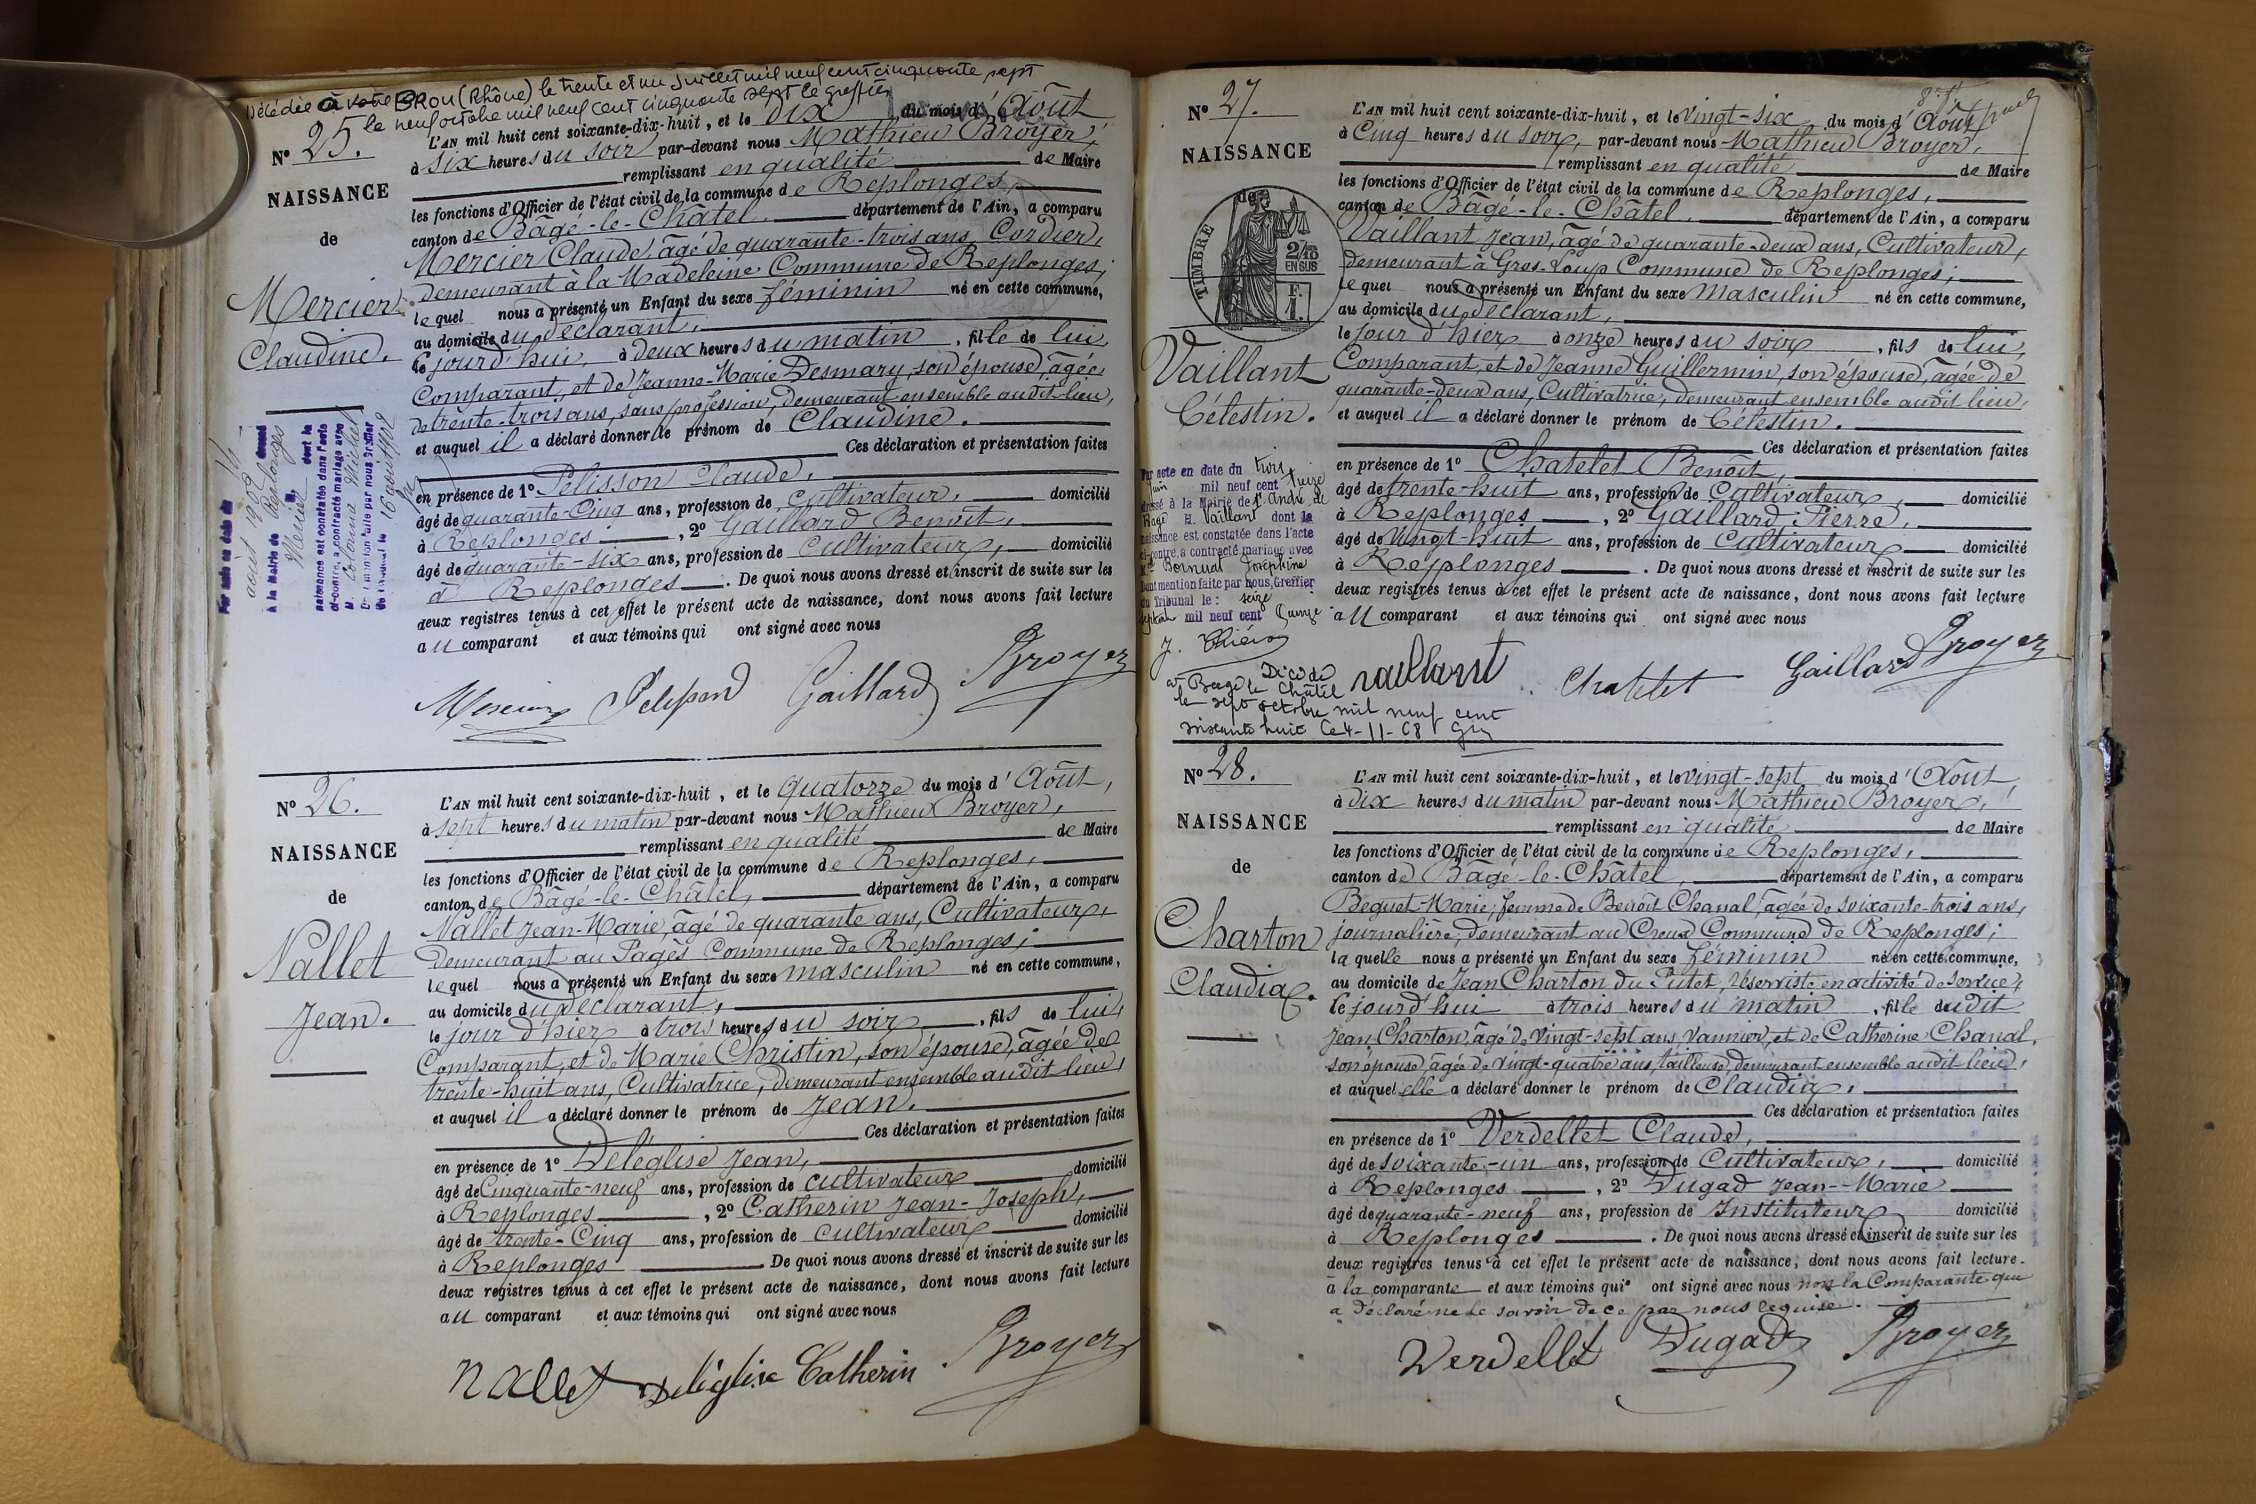 Décédée à BRON (Rhône) le trente et un Juillet mil neuf cent cinquante sept
le neuf octobre mil neuf cent cinquante sept Le greffier
N° 25.
NAISSANCE
de
Mercier
Claudine.
L'AN mil huit cent soixante-dix-huit, et le dix du mois d'Août
à six heures du soir par-devant nous Mathieu Broyer,
remplissant en qualité de Maire
les fonctions d'Officier de l'état civil de la commune de Replonges,
canton de Bâgé-le-Châtel, département de l'Ain, a comparu
Mercier Claude, âgé de quarante-trois ans, Cordier,
demeurant à la Madeleine Commune de Replonges;
lequel nous a présenté un Enfant du sexe féminin né en cette commune,
au domicile du déclarant,
le jourd'hui, à deux heures du matin, fille de lui,
Comparant, et de Jeanne-Marie Desmary, son épouse, âgée
de trente-trois ans, sans profession, demeurant ensemble audit lieu,
et auquel il a déclaré donner le prénom de Claudine.
Ces déclaration et présentation faites
en présence de 1° Pelisson Claude,
âgé de quarante-cinq ans, profession de cultivateur, domicilié
à Replonges, 2° Gaillard Benoît,
âgé de quarante-six ans, profession de cultivateur, domicilié
à Replonges. De quoi nous avons dressé et inscrit de suite sur les
deux registres tenus à cet effet le présent acte de naissance, dont nous avons fait lecture
au comparant et aux témoins qui ont signé avec nous
Par acte en date du
août 1902 dressé
à la Mairie de Replonges
M. Mercier dont la
naissance est constatée dans l'acte
ci-contre, a contracté mariage avec
M. Michel
Mercier Pelisson Gaillard Broyer
N° 26.
NAISSANCE
de
Nallet
Jean.
L'AN mil huit cent soixante-dix-huit, et le quatorze du mois d'Août,
à sept heures du matin par-devant nous Mathieu Broyer,
remplissant en qualité de Maire
les fonctions d'Officier de l'état civil de la commune de Replonges,
canton de Bâgé-le-Châtel, département de l'Ain, a comparu
Nallet Jean-Marie, âgé de quarante ans, Cultivateur,
demeurant au Pagès Commune de Replonges;
lequel nous a présenté un Enfant du sexe masculin né en cette commune,
au domicile du déclarant,
le jour d'hier à trois heures du soir, fils de lui,
Comparant, et de Marie Christin, son épouse, âgée de
trente-huit ans, Cultivatrice, demeurant ensemble audit lieu,
et auquel il a déclaré donner le prénom de Jean.
Ces déclaration et présentation faites
en présence de 1° Deléglise Jean,
âgé de cinquante-neuf ans, profession de cultivateur domicilié
à Replonges, 2° Catherin Jean-Joseph,
âgé de trente-cinq ans, profession de cultivateur domicilié
à Replonges De quoi nous avons dressé et inscrit de suite sur les
deux registres tenus à cet effet le présent acte de naissance, dont nous avons fait lecture
au comparant et aux témoins qui ont signé avec nous
Nallet Deléglise Catherin Broyer
N° 27.
NAISSANCE
de
TIMBRE
2/10
EN SUS
F.
1.
Vaillant
Célestin.
L'AN mil huit cent soixante-dix-huit, et le vingt-six du mois d'Août
à cinq heures du soir, par-devant nous Mathieu Broyer,
remplissant en qualité de Maire
les fonctions d'Officier de l'état civil de la commune de Replonges,
canton de Bâgé-le-Châtel, département de l'Ain, a comparu
Vaillant Jean, âgé de quarante-deux ans, Cultivateur,
demeurant à Gros-Loup Commune de Replonges;
lequel nous a présenté un Enfant du sexe masculin né en cette commune,
au domicile du déclarant,
le jour d'hier à onze heures du soir, fils de lui,
Comparant, et de Jeanne Guillermin, son épouse, âgée de
quarante-deux ans, Cultivatrice, demeurant ensemble audit lieu,
et auquel il a déclaré donner le prénom de Célestin.
Ces déclaration et présentation faites
en présence de 1° Chatelet Benoît,
âgé de trente-huit ans, profession de Cultivateur, domicilié
à Replonges, 2° Gaillard Pierre,
âgé de vingt-huit ans, profession de cultivateur domicilié
à Replonges. De quoi nous avons dressé et inscrit de suite sur les
deux registres tenus à cet effet le présent acte de naissance, dont nous avons fait lecture
au comparant et aux témoins qui ont signé avec nous
Par acte en date du trois
juin mil neuf cent treize
dressé à la Mairie de St André de
Bagé M. Vaillant dont la
naissance est constatée dans l'acte
ci-contre, a contracté mariage avec
M. Bornuat Joséphine
Dont mention faite par nous, Greffier
du Tribunal le: seize
septembre mil neuf cent quinze
Décédé
à Bâgé le Châtel
le sept octobre mil neuf cent
soixante huit Le 4-11-68
Vaillant Chatelet Gaillard Broyer
N° 28.
NAISSANCE
de
Charton
Claudia.
L'AN mil huit cent soixante-dix-huit, et le vingt-sept du mois d'Août,
à dix heures du matin par-devant nous Mathieu Broyer,
remplissant en qualité de Maire
les fonctions d'Officier de l'état civil de la commune de Replonges,
canton de Bâgé-le-Châtel, département de l'Ain, a comparu
Beguet Marie, femme de Benoît Chanal, âgée de soixante-trois ans,
journalière, demeurant au Creux Commune de Replonges;
laquelle nous a présenté un Enfant du sexe féminin né en cette commune,
au domicile de Jean Charton du Putet, réserviste en activité de service;
le jourd'hui à trois heures du matin, fille dudit
Jean Charton, âgé de vingt-sept ans, vannier, et de Catherine Chanal,
son épouse, âgée de vingt-quatre ans, tailleuse, demeurant ensemble audit lieu,
et auquel elle a déclaré donner le prénom de Claudia.
Ces déclaration et présentation faites
en présence de 1° Verdellet Claude,
âgé de soixante-un ans, profession de Cultivateur, domicilié
à Replonges, 2° Dugad Jean-Marie
âgé de quarante-neuf ans, profession de Instituteur domicilié
à Replonges. De quoi nous avons dressé et inscrit de suite sur les
deux registres tenus à cet effet le présent acte de naissance, dont nous avons fait lecture.
à la comparante et aux témoins qui ont signé avec nous non la Comparante qui
a déclaré ne le savoir de ce par nous requise.
Verdellet Dugad Broyer